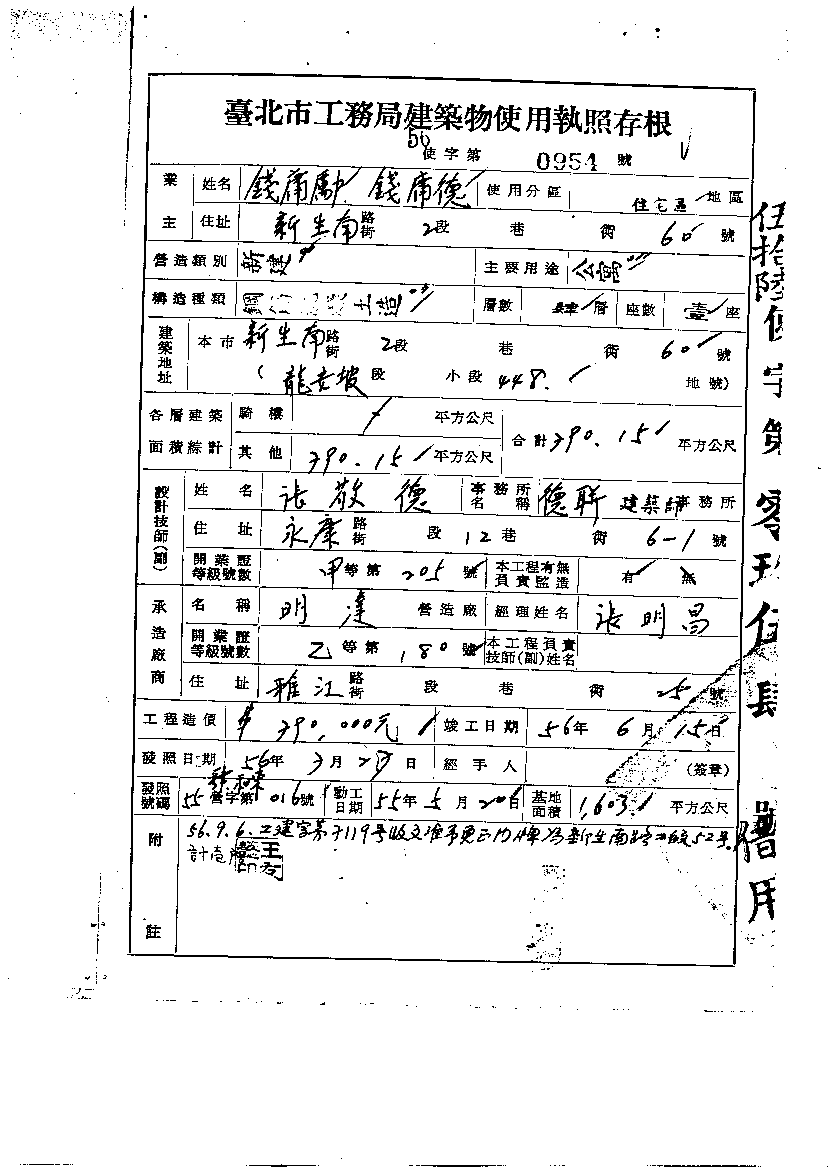 臺北市工務局建築物使用執照存根
56使字第 0954 號
業主 姓名 錢 錢 德 使用分區 住宅區 地區
住址 新生南路街 2段 巷 衖 60 號
營造類別 新建 主要用途 公寓
構造種類 鋼筋混凝土造 層數 肆層 座數 壹座
建築地址 本市新生南路街 2段 巷 衖 60 號
( 龍安坡段 小段 448. 地號)
各層建築面積綜計 騎樓 平方公尺 合計 390.15 平方公尺
其他 390.15 平方公尺
設計技師(副) 姓名 張敬德 事務所名稱 德聯建築師事務所
住址 永康路街 段 12巷 衖 6-1 號
開業證等級號數 甲等第 205 號 本工程有無負責監造 有 無
承造廠商 名稱 明達 營造廠 經理姓名 張明昌
開業證等級號數 乙等第 180 號 本工程負責技師(副)姓名
住址 雅江路街 段 巷 衖 25 號
工程造價 390,000元 竣工日期 56年 6月 15日
發照日期 56年 日 經手人 (簽章)
發照號碼 55營字第 016號 動工日期 55年 5月 20日 基地面積 1,603. 平方公尺
附註 56.9.6.工建字第 號收文准予更正門牌為新生南路二段52號
伍拾陸使字第零玖伍肆 借用